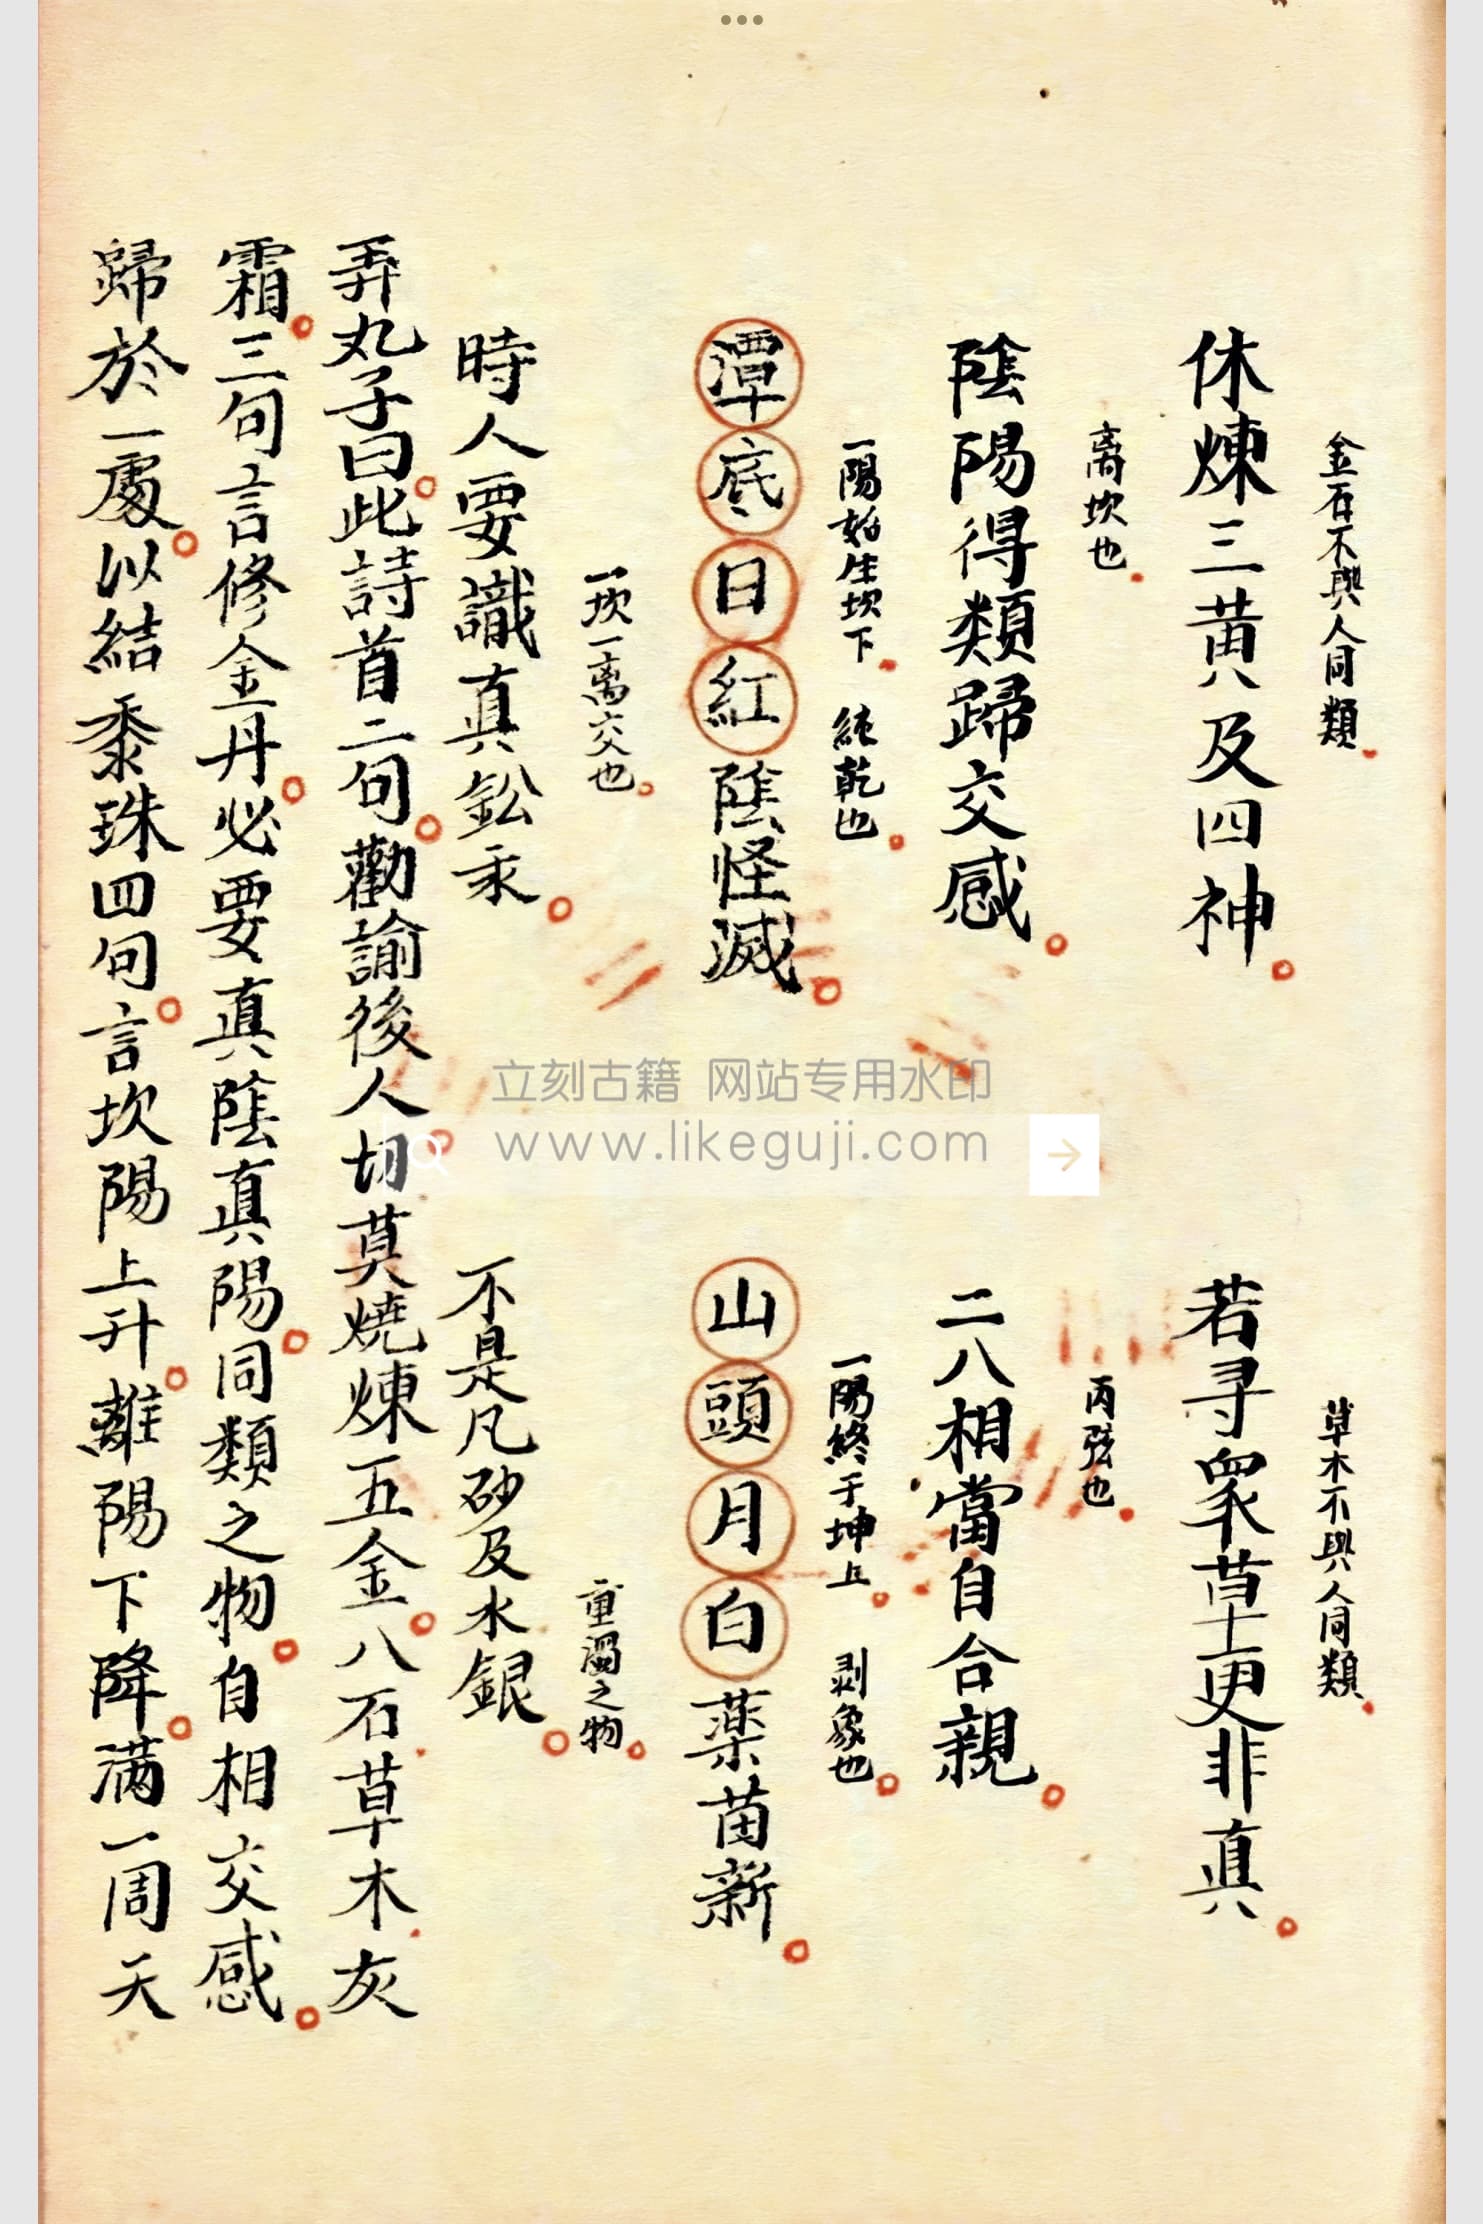 金石不與人同類　草木不與人同類
休煉三黃及四神　若寻眾草更非真
离坎也　丙弦也
陰陽得類歸交感　二八相當自合親
一陽始生坎下　純乾也　一陽終于坤上　剥象也
潭底日紅陰怪滅　山頭月白藥苗新
一坎一离交也　重濁之物
時人要識真鈆汞　不是凡砂及水銀
弄丸子曰此詩首二句勸諭後人切莫燒煉五金八石草木灰
霜三句言修金丹必要真陰真陽同類之物自相交感
歸於一處以結黍珠四句言坎陽上升離陽下降满一周天
立刻古籍 网站专用水印
www.likeguji.com